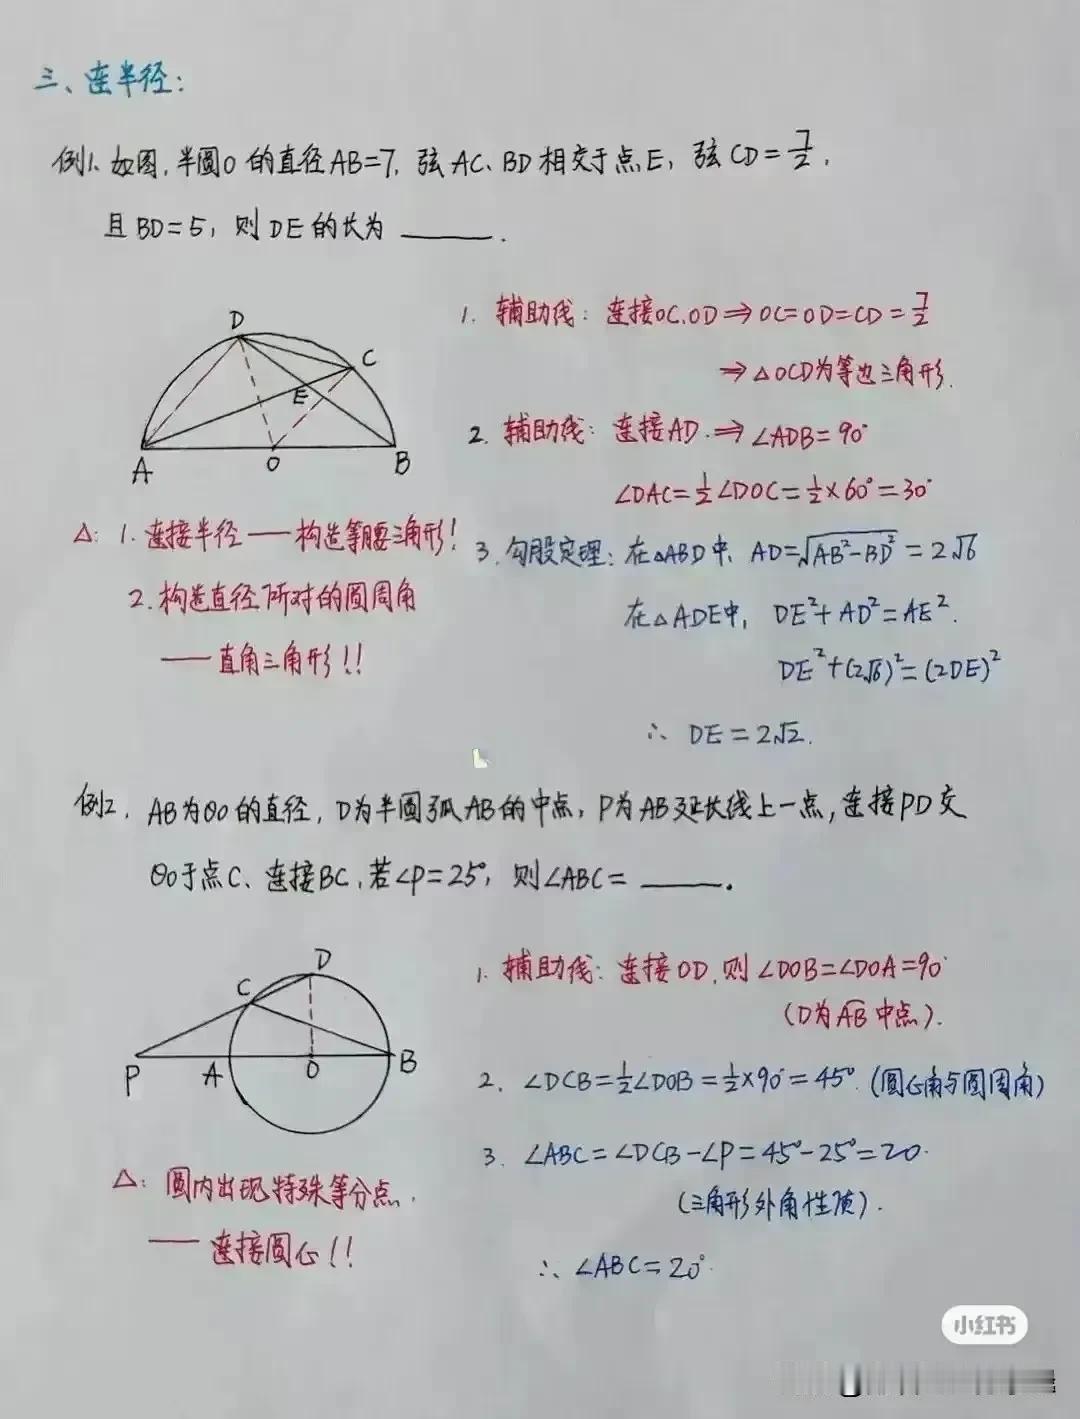 三、连半径：
例1. 如图, 半圆O 的直径AB=7, 弦AC、BD 相交于点E, 弦CD=7/2,
且BD=5, 则DE的长为 ______.
1. 辅助线: 连接OC.OD ⇒ OC=OD=CD=7/2
⇒ △OCD为等边三角形.
2. 辅助线: 连接AD. ⇒ ∠ADB=90°
∠DAC=1/2∠DOC=1/2×60°=30°
D
C
E
A
O
B
△: 1. 连接半径——构造等腰三角形!
2. 构造直径所对的圆周角
——直角三角形!!
3. 勾股定理: 在△ABD中, AD=√(AB²-BD²)=2√6
在△ADE中, DE²+AD²=AE².
DE²+(2√6)²=(2DE)²
∴ DE=2√2.
例2. AB为⊙O的直径, D为半圆弧AB的中点, P为AB延长线上一点, 连接PD交
⊙O于点C、连接BC, 若∠P=25°, 则∠ABC= ______.
D
C
P
A
O
B
1. 辅助线: 连接OD, 则∠DOB=∠DOA=90°
(D为AB中点).
2. ∠DCB=1/2∠DOB=1/2×90°=45°. (圆心角与圆周角)
3. ∠ABC=∠DCB-∠P=45°-25°=20°.
(三角形外角性质).
∴ ∠ABC=20°.
△: 圆内出现特殊等分点.
——连接圆心!!
小红书